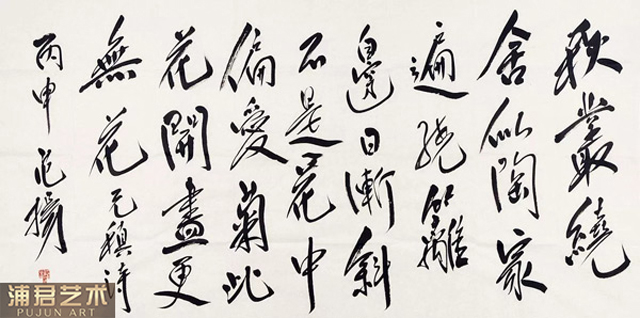 秋叢繞
舍似陶家
遍繞籬
邊日漸斜
不是花中
偏愛菊此
花開盡更
無花 元稹詩
丙申 范揚
浦君艺术
PUJUN ART